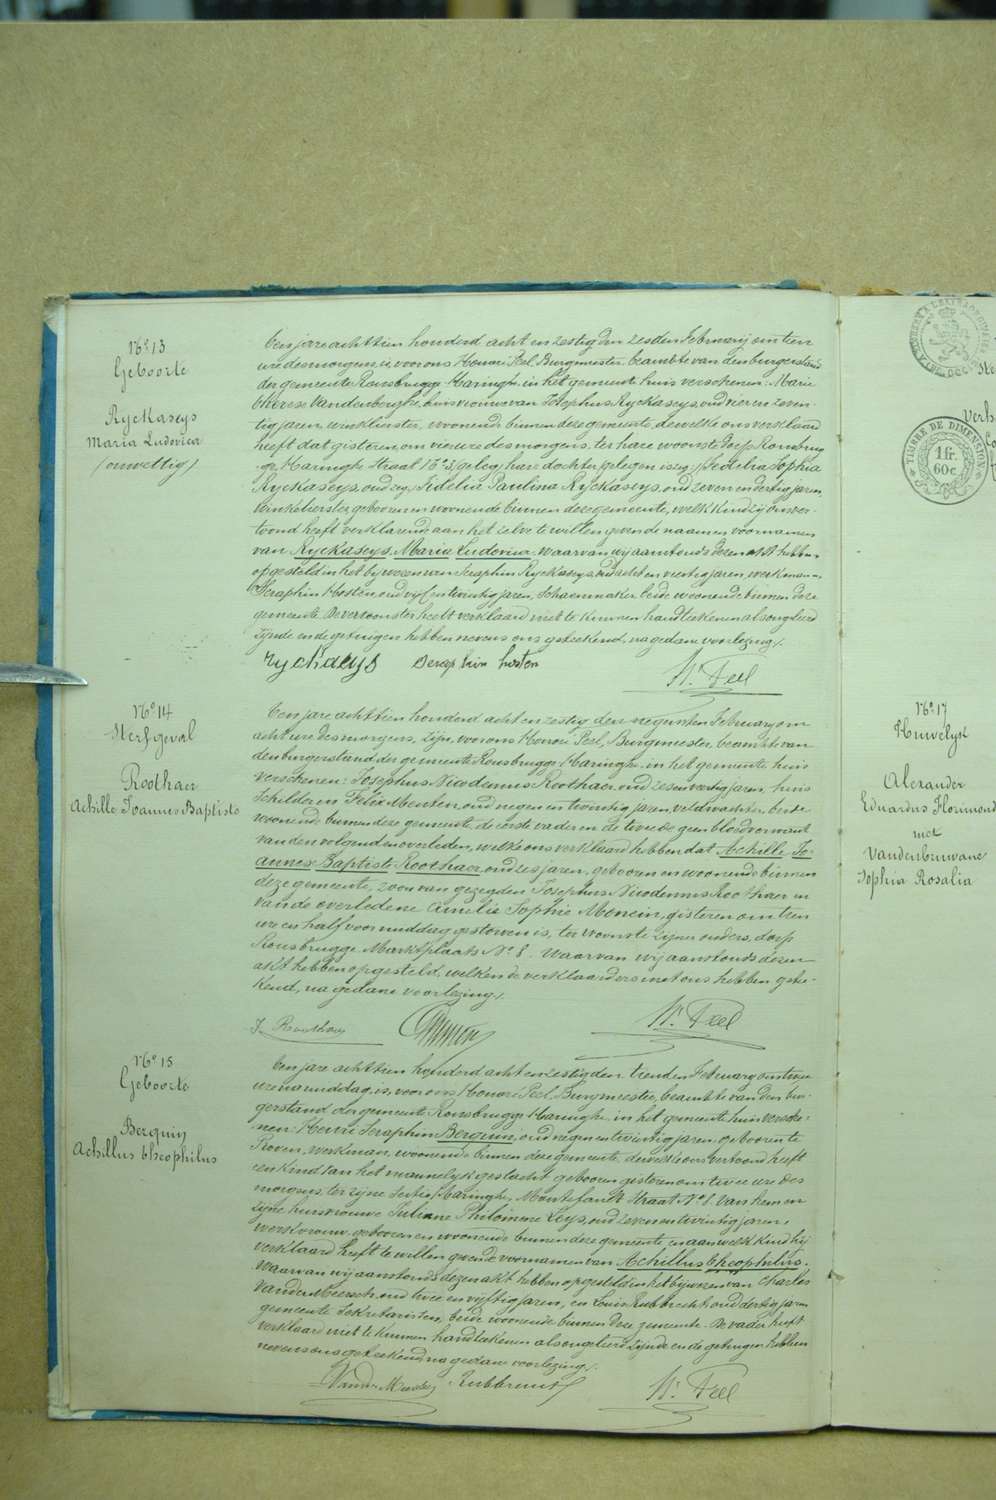 N° 13
Geboorte
Ryckaseys
Maria Ludovica
(onwettig)
den jare achttien honderd acht en zestig den zesden Februarij om tien
ure des morgens is voor ons Honoré Peel, Burgmeester, beambte van den burgerstand
der gemeente Rousbrugge-Haringhe, in het gemeente huis verschenen: Marie
Therese Vandenberghe, huisvrouwe van Josephus Ryckaseys, oud vier en zeven-
tig jaren, winkelierster, woonende binnen deze gemeente, dewelke ons verklaard
heeft dat gisteren, om vier ure des morgens, ter hare woonste dorp Rousbrug-
ge-Haringhe Straat N° geleg, hare dochter Fidelia Sophia
Ryckaseys, oud Fidelia Paulina Ryckaseys, oud zeven en dertig jaren,
geboren en woonende binnen deze gemeente, welk kind zij ons ver-
toond heeft verklarende aan het zelve te willen geven de naam en voornamen
van Ryckaseys, Maria Ludovica. Waarvan wij aanstonds dezen akt hebben
opgesteld in het bijwezen van Seraphin Ryckaseys, oud acht en veertig jaren, werkman en
Seraphin Hosten, oud vijf en twintig jaren, Schoenmaker, beide woonende binnen deze
gemeente. De vertoonster heeft verklaard niet te kunnen handteekenen als ongeleerd
zijnde en de getuigen hebben nevens ons geteekend, na gedane voorlezing /.
ryckaeys Seraphin hosten
H. Peel
N° 14
Sterfgeval
Roothaer
Achille Joannes Baptiste
den jare achttien honderd acht en zestig den negensten February om
acht ure des morgens, zijn, voor ons Honoré Peel, Burgmeester, beambte van
den burgerstand der gemeente Rousbrugge-Haringhe in het gemeente huis
verschenen: Josephus Nicodemus Roothaer, oud zesen veertig jaren, huis
schilder en Felix Meuten oud negen en twintig jaren, veldwachter, beide
woonende binnen deze gemeente, de eerste vader en de tweede geen bloedverwant
van den volgenden overleden, welke ons verklaard hebben dat Achille Jo-
annes Baptiste Roothaer, oud zes jaren, geboren en woonende binnen
deze gemeente, zoon van gezegden Josephus Nicodemus Roothaer en
van de overledene Amelie Sophie Monein, gisteren om tien
ure en half voormiddag gestorven is, ter woonste zijner ouders, dorp
Rousbrugge Marktplaats N° 8. Waarvan wij aanstonds dezen
akt hebben opgesteld, welken de verklaarders met ons hebben getee-
kend, na gedane voorlezing /.
J. Roothaer
H. Peel
N° 15
Geboorte
Berquin
Achillus Theophilus
den jare achttien honderd acht en zestig den tienden February om twee
ure namiddag, is, voor ons Honoré Peel, Burgmeester, beambte van den bur-
gerstand der gemeente Rousbrugge Haringhe in het gemeente huis versche-
nen: Henri Seraphin Berquin, oud negen en twintig jaren, geboren te
Proven, werkman, woonende binnen deze gemeente, dewelke ons vertoond heeft
een kind van het mannelijk geslacht geboren gisteren om twee ure des
morgens, ter zijne Haringhe, Straat N° 1. van hem en
zijne huisvrouwe Juliane Philomene Leys, oud zeven en twintig jaren,
werkvrouw, geboren en woonende binnen deze gemeente, en aan welk kind hij
verklaard heeft te willen geven de voornamen van Achillus Theophilus.
Waarvan wij aanstonds dezen akt hebben opgesteld in het bijwezen van Charles
Vandermeersch, oud twee en vijftig jaren, en Louis Rubbrecht, oud dertig jaren
gemeente Sekretarissen, beide woonende binnen deze gemeente. De vader heeft
verklaard niet te kunnen handteekenen als ongeleerd zijnde en de getuigen hebben
nevens ons geteekend na gedane voorlezing /.
H. Peel
TIMBRE DE DIMENSION
1 fr.
60 c.
N° 17
Huwelyk
Alexander
Eduardus Florimond
met
Vandenbruwane
Sophia Rosalia